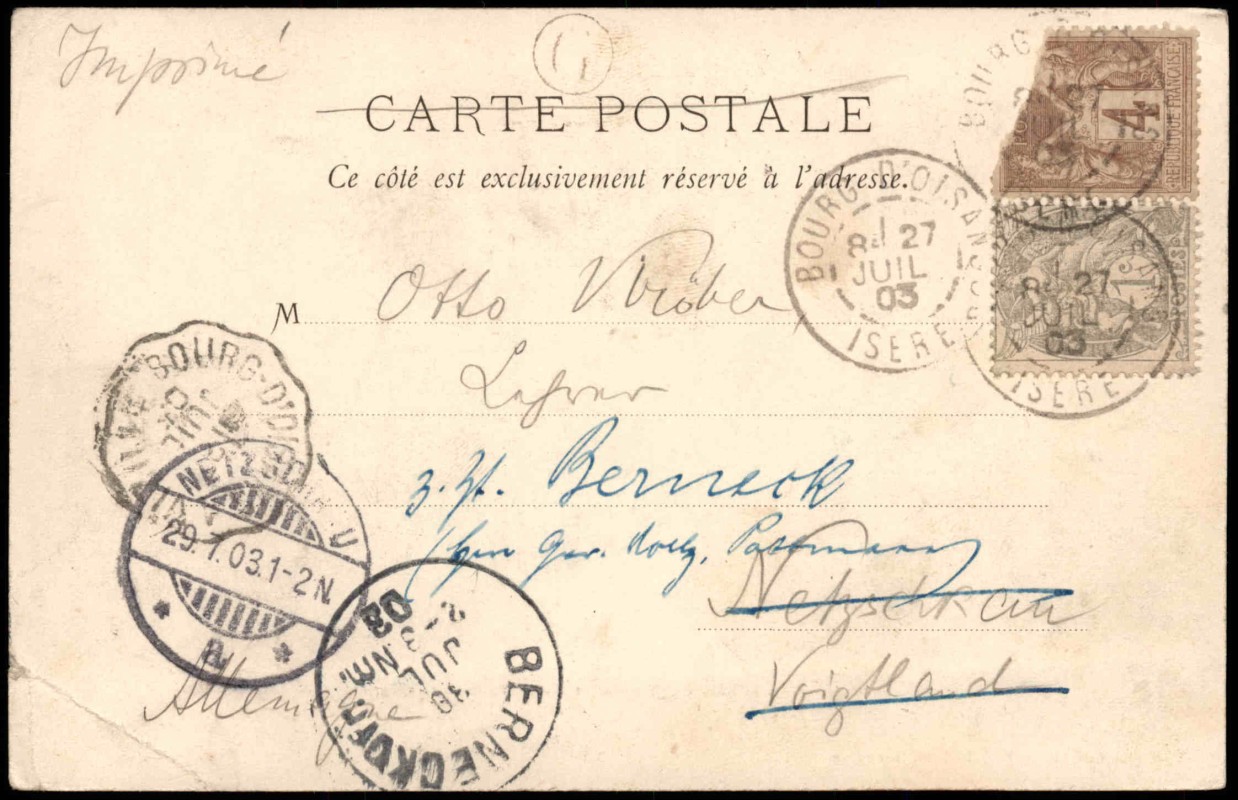 Imprimé
CARTE POSTALE
Ce côté est exclusivement réservé à l'adresse.
RÉPUBLIQUE FRANÇAISE
4
POSTES
BOURG-D'OISANS
8E 27
JUIL
03
ISERE
8E 27
JUIL
03
ISERE
M Otto
Lehrer
z. Zt. Berneck
Netzschkau
Voigtland
Allemagne
BOURG-D'OI
NETZSCHKAU
29.7.03.1-2N.
* a *
BERNECK
30
JUL
2-3 NM.
03